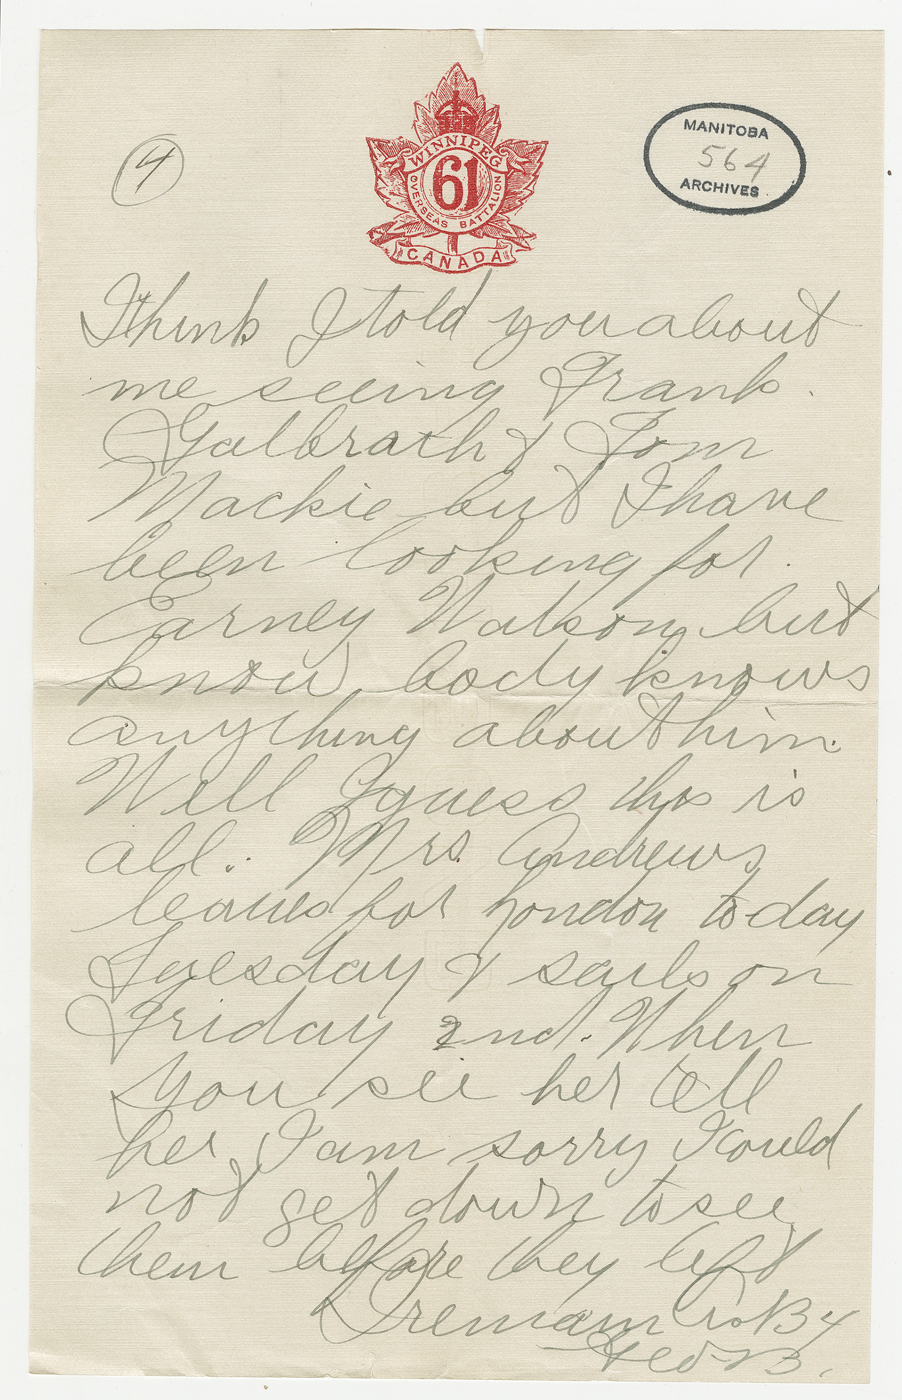 4
WINNIPEG
61
OVERSEAS BATTALION
CANADA
MANITOBA
564
ARCHIVES
I think I told you about
me seeing Frank
Galbrath & Tom
Mackie but I have
been looking for
Earney Watson but
know body knows
anything about him.
Well I guess this is
all. Mrs. Andrews
leaves for London to-day
Tuesday & sails on
Friday 2nd. When
you see her tell
her I am sorry I could
not get down to see
them before they left
I remain